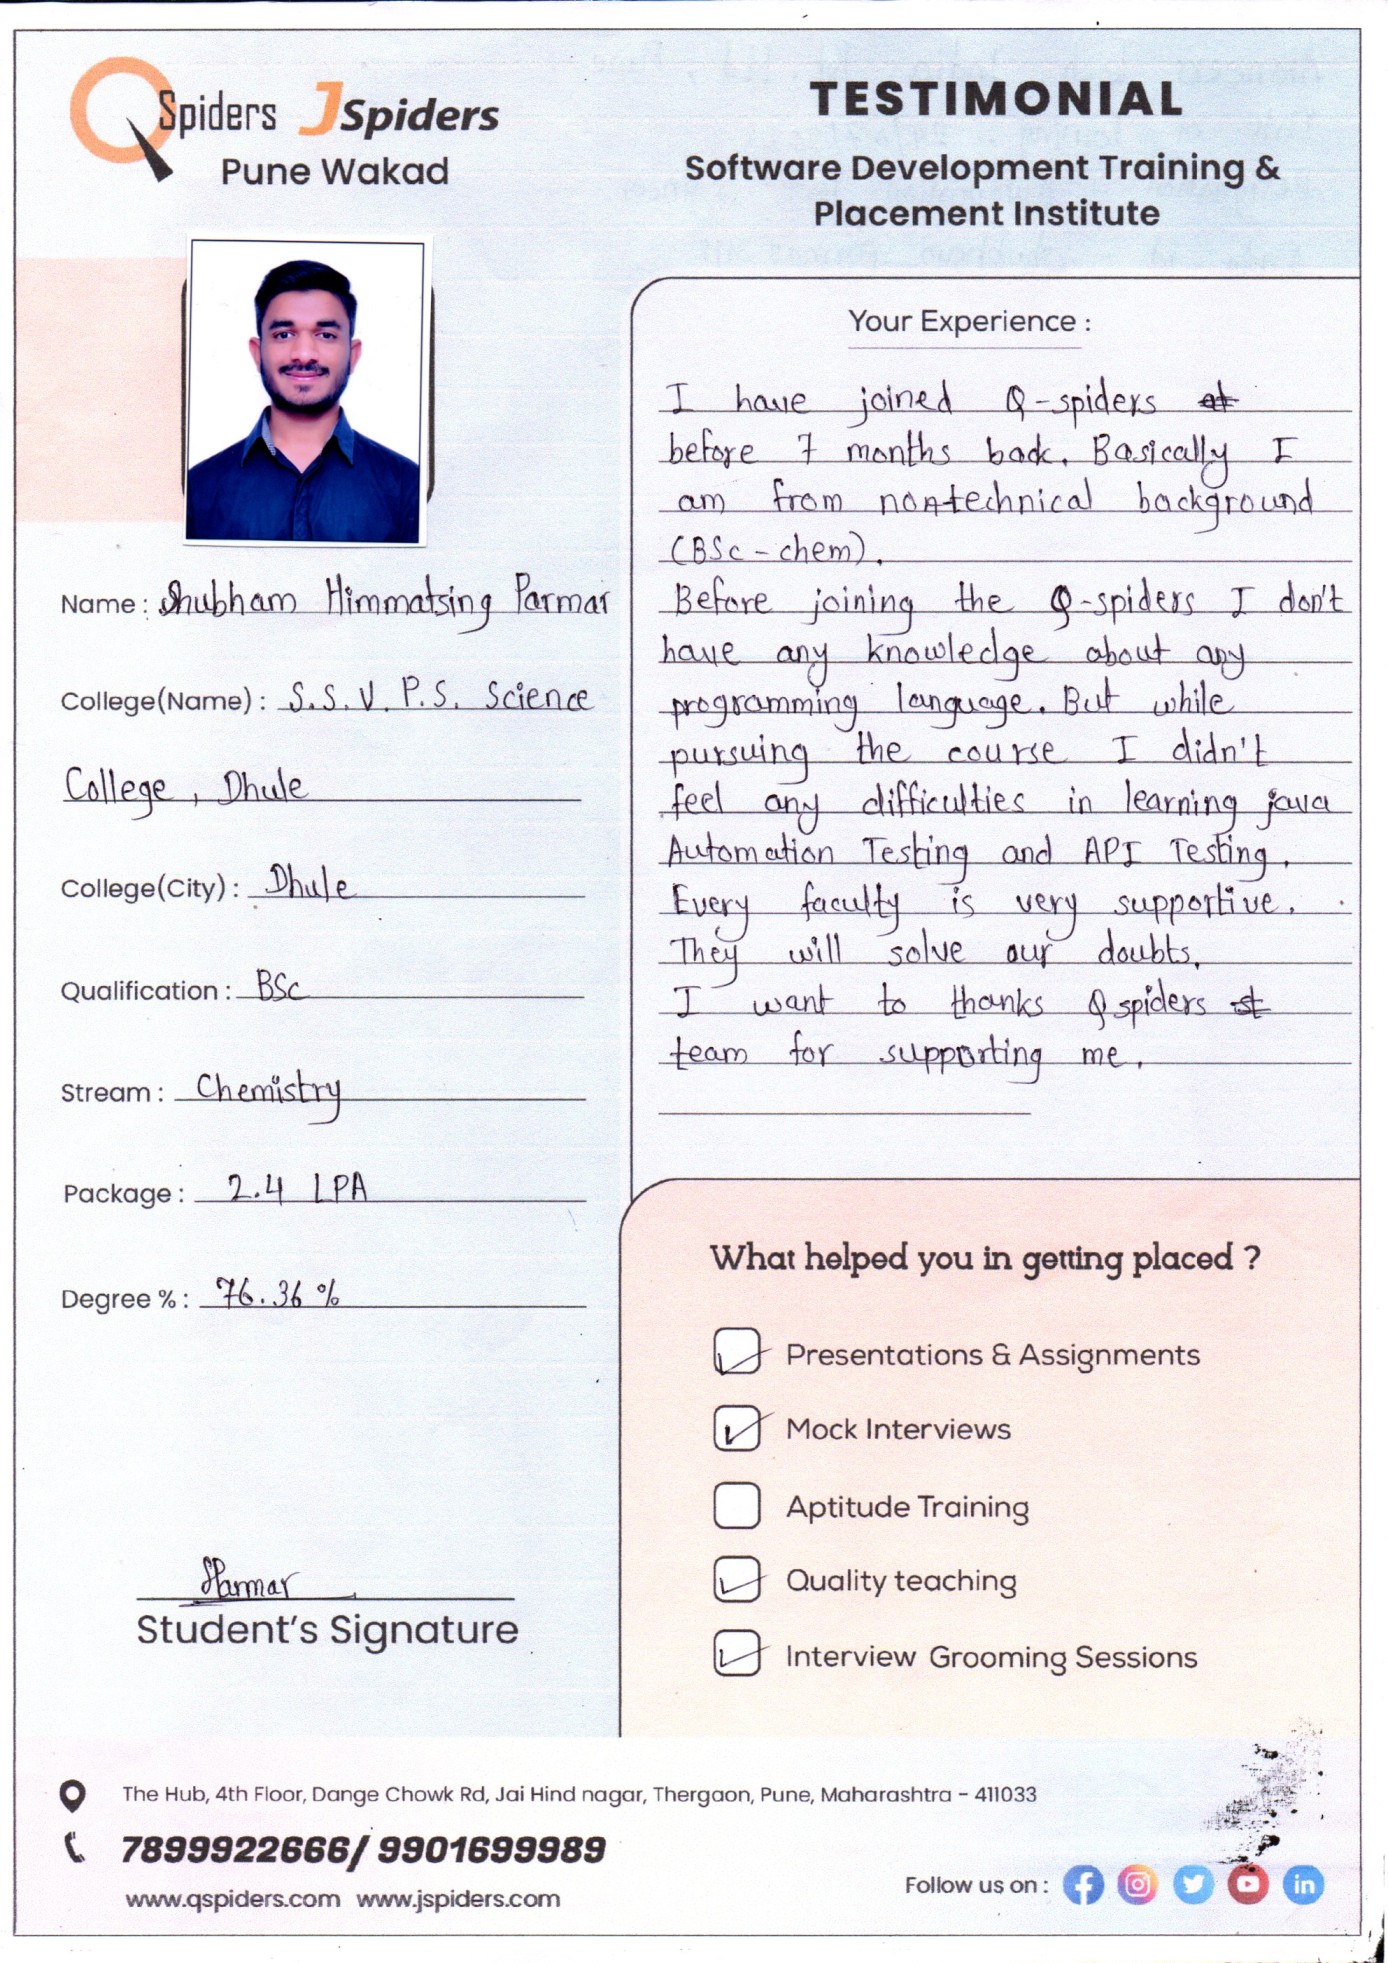 QSpiders JSpiders
Pune Wakad
TESTIMONIAL
Software Development Training &
Placement Institute
Name : Shubham Himmatsing Parmar
College(Name) : S.S.V.P.S. Science
College, Dhule
College(City) : Dhule
Qualification : BSc
Stream : Chemistry
Package : 2.4 LPA
Degree % : 76.36 %
Parmar
Student's Signature
Your Experience :
I have joined Q-spiders at
before 7 months back. Basically I
am from nontechnical background
(BSc - chem).
Before joining the Q-spiders I don't
have any knowledge about any
programming language. But while
pursuing the course I didn't
feel any difficulties in learning java
Automation Testing and API Testing.
Every faculty is very supportive.
They will solve our doubts.
I want to thanks Qspiders st
team for supporting me.
What helped you in getting placed ?
Presentations & Assignments
Mock Interviews
Aptitude Training
Quality teaching
Interview Grooming Sessions
The Hub, 4th Floor, Dange Chowk Rd, Jai Hind nagar, Thergaon, Pune, Maharashtra - 411033
7899922666/ 9901699989
www.qspiders.com www.jspiders.com
Follow us on :